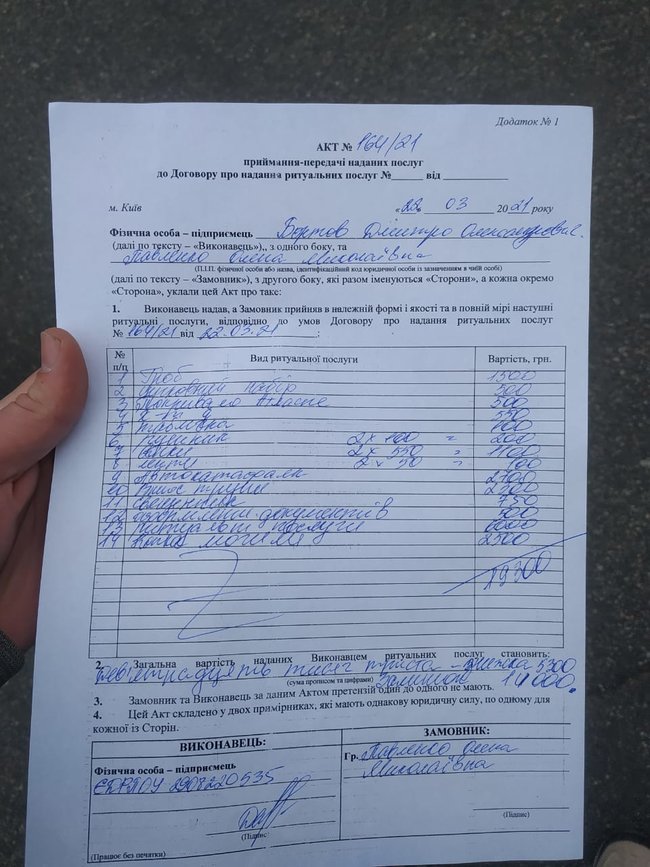 Додаток № 1
АКТ № 164/21
приймання-передачі наданих послуг
до Договору про надання ритуальних послуг №______ від ___________
м. Київ «22» 03 2021 року
Фізична особа – підприємець Бортов Дмитро Олександрович
(далі по тексту – «Виконавець»), з одного боку, та
Павленко Олена Миколаївна
(П.І.П. фізичної особи або назва, ідентифікаційний код юридичної особи із зазначенням в чиїй особі)
(далі по тексту – «Замовник»), з другого боку, які разом іменуються «Сторони», а кожна окремо
«Сторона», уклали цей Акт про таке:
1. Виконавець надав, а Замовник прийняв в належній формі і якості та в повній мірі наступні
ритуальні послуги, відповідно до умов Договору про надання ритуальних послуг
№ 164/21 від 22.03.21 ;
№ п/п Вид ритуальної послуги Вартість, грн.
1 Гроб 1500
2 набір 500
3 Покривало Атласне 500
4 550
5 600
6 Рушник 2 x 100 = 200
7 2 x 550 = 1100
8 2 x 50 = 100
9 Автокатафалк 2700
10 Винос труни
11 Священник 750
12 Оформлення документів 500
13 Ритуальні послуги 6000
14 могили 2500
19300
2. Загальна вартість наданих Виконавцем ритуальних послуг становить:
Дев'ятнадцять тисяч триста – 5300
(сума прописом та цифрами) Залишок 14000.
3. Замовник та Виконавець за даним Актом претензій один до одного не мають.
4. Цей Акт складено у двох примірниках, які мають однакову юридичну силу, по одному для
кожної із Сторін.
ВИКОНАВЕЦЬ: ЗАМОВНИК:
Фізична особа – підприємець Гр. Павленко Олена
Миколаївна
ЄДРПОУ 2908220535
(Підпис) (Підпис)
(Працює без печатки)